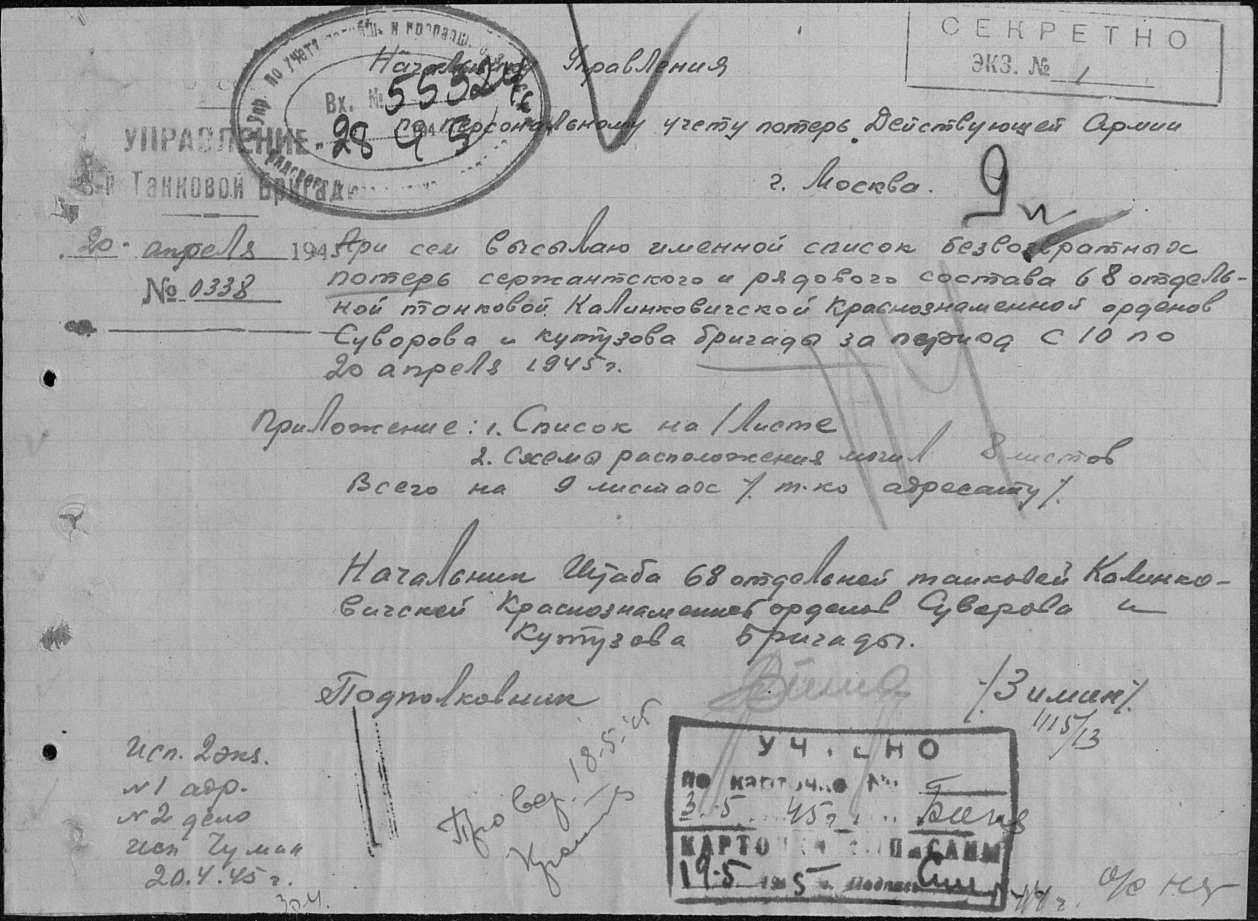 СЕКРЕТНО
ЭКЗ. № 1
Начальнику Управления
по персональному учету потерь Действующей Армии
г. Москва.
Упр. по учету
Вх. №
28 4 5
УПРАВЛЕНИЕ
Танковой Бригады
20 апреля 1945
№ 0338
При сем высылаю именной список безвозвратных
потерь сержантского и рядового состава 68 отдель-
ной танковой Калинковичской Краснознаменной орденов
Суворова и Кутузова бригады за период с 10 по
20 апреля 1945 г.
Приложение: 1. Список на 1 листе
2. Схемы расположения могил 8 листов
Всего на 9 листах /т.ко адресату/.
Начальник Штаба 68 отдельной танковой Калинко-
вичской Краснознаменной орденов Суворова и
Кутузова Бригады.
Подполковник /Зимин/.
1115/13
Исп. 2 экз.
№1 адр.
№2 дело
исп Чуман
20.4.45 г.
Провер. 18-5-45
УЧТЕНО
по карточке №
3.5 45 г.
КАРТОЧКИ
19.5 1945 г. Подпись